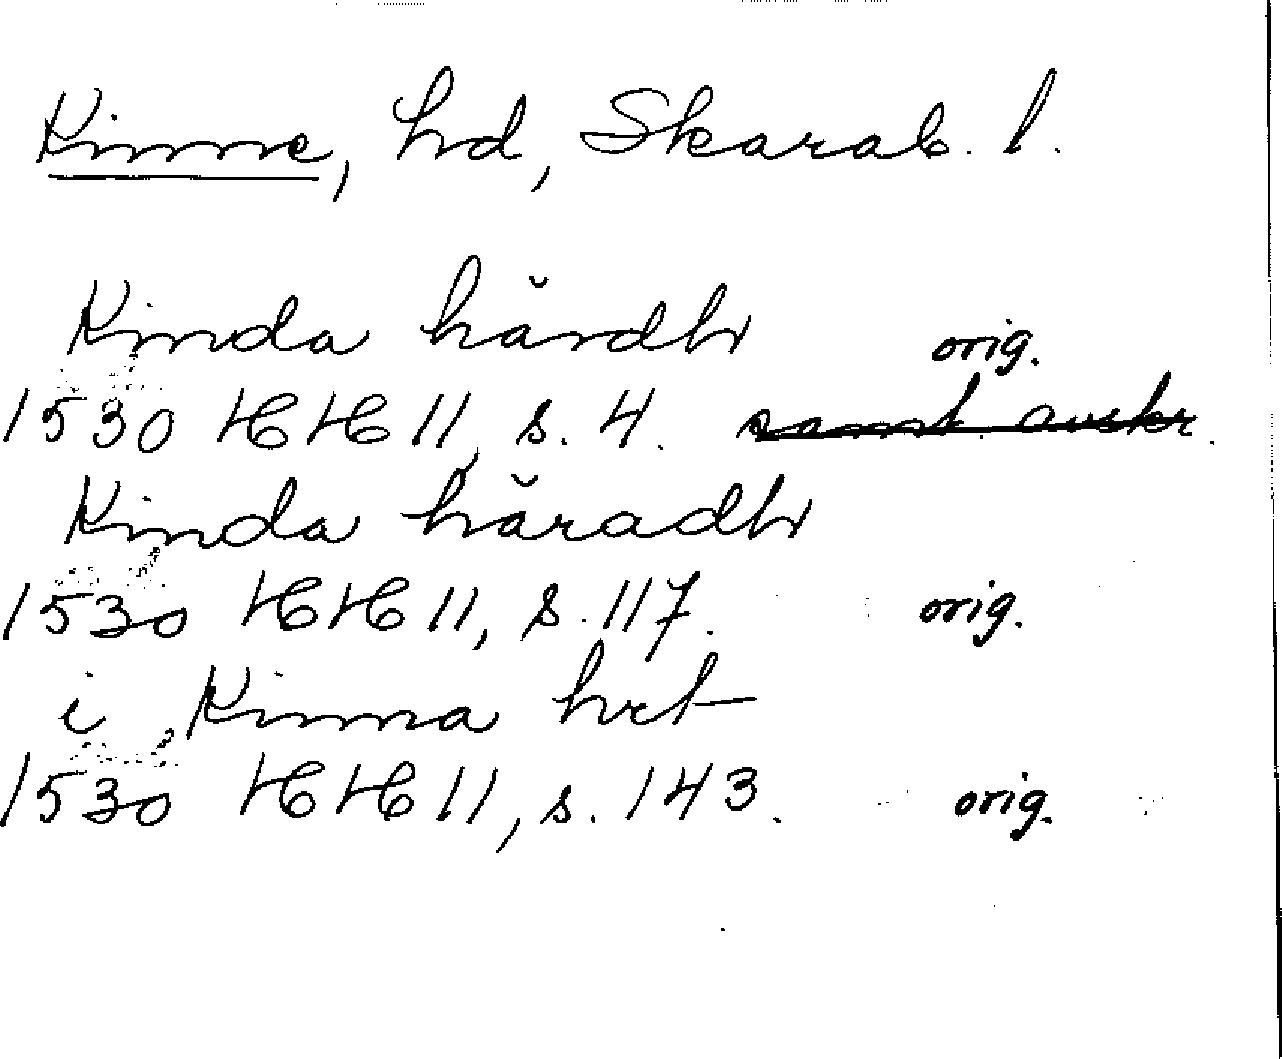 Kinne, hd, Skarab. l.
Kinda härdh orig.
1530 HH 11, s. 4. samt. avskr.
Kinda häradh
1530 HH 11, s. 117. orig.
i Kinna hrt
1530 HH 11, s. 143. orig.